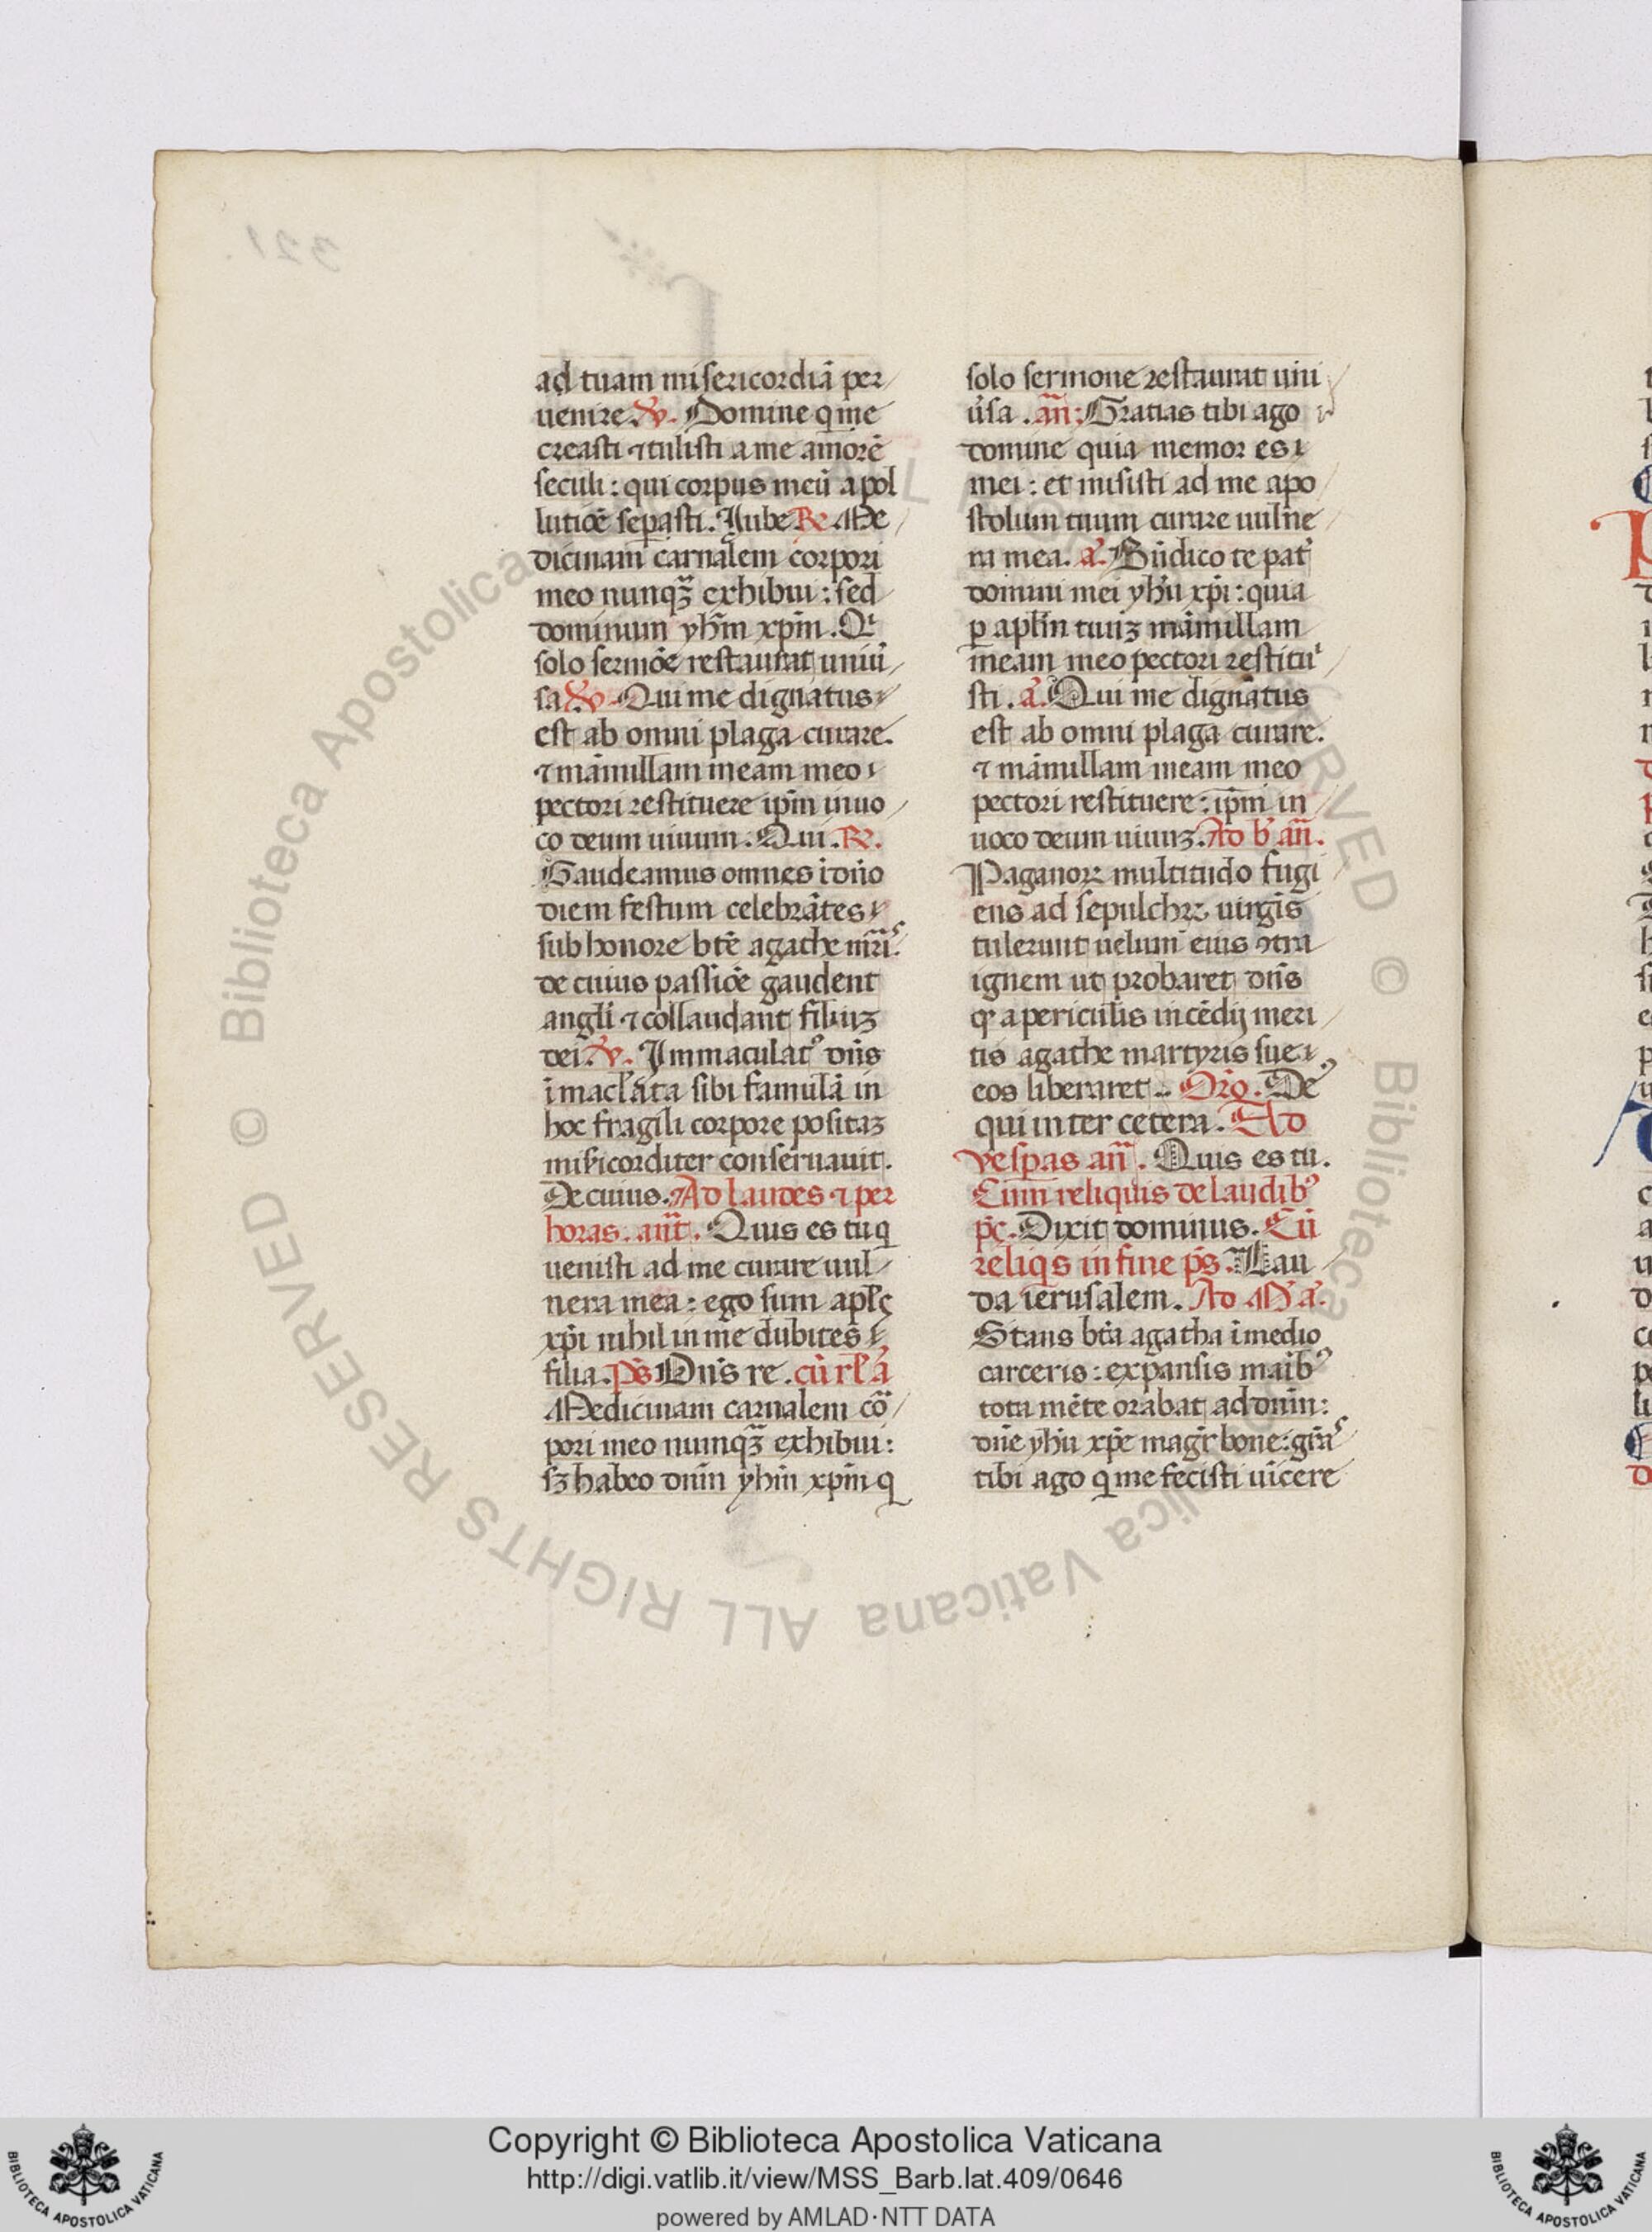 ad tuam misericordiā per
uenire. ℣. Domine q̄ me
creasti ⁊ tulisti a me amorē
seculi: qui corpus meū a pol
lutiōe sep̄asti. Iube ℞ Me
dicinam carnalem corpori
meo nunqȝ̄ exhibui: sed
dominum yhm̄ xpm̄. Qⁱ
solo sermōe restaurat uniū
sa ℣. Qui me dignatus
est ab omni plaga curare.
⁊ māmillam meam meo
pectori restituere ip̄m inuo
co deum uiuum. Qui. ℞.
Gaudeamus omnes ī dn̄o
diem festum celebrātes
sub honore btē agathe mr̄i
de cuius passiōe gaudent
angl̄i ⁊ collaudant filiuȝ
dei. ℣. Immaculatꝰ dn̄s
īmacl̄ata sibi famulā in
hoc fragili corpore positaȝ
misīcorditer conseruauit.
De cuius. Ad laudes ⁊ per
horas. an̄t. Quis es tu q̄
uenisti ad me curare uul
nera mea: ego sum apl̄s
xp̄i nihil in me dubites
filia. p̄s Dn̄s re. cū rl̄ a
Medicinam carnalem cō
pori meo nunqȝ̄ exhibui:
sȝ habeo dnm̄ yhm̄ xpm̄ q
solo sermone restaurat uni
u̾sa. an̄: Gratias tibi ago
domine quia memor es
mei: et misisti ad me apo
stolum tuum curare uulne
ra mea. a. Bn̄dico te pat̾
domini mei yhu̾ xp̄i: quia
ꝑ apl̄m tuuȝ māmillam
meam meo pectori restitu
sti. a. Qui me dignatus
est ab omni plaga curare.
⁊ māmillam meam meo
pectori restituere: ip̄m in
uoco deum uiuuȝ. Ad b̄ an̄.
Paganoꝝ multitudo fugi
ens ad sepulchꝝ uirgīs
tulerunt uelum eius ꝯtra
ignem ut probaret dn̄s
qͬ a periculis incēdij meri
tis agathe martyris sue
eos liberaret. Orō. De
qui inter cetera. Ad
vesp̄as an̄. Quis es tu.
Cum reliquis de laudibꝰ
p̄s. Dixit dominus. Cū
reliqs in fine p̄s. Lau
da ierusalem. Ad M̄ a.
Stans btā agatha ī medio
carceris: expansis maībꝰ
tota mēte orabat ad dnm̄:
dn̄e yhu̾ xp̄e magr̄ bone: gr̄a
tibi ago q̄ me fecisti uīcere
Copyright © Biblioteca Apostolica Vaticana
http://digi.vatlib.it/view/MSS_Barb.lat.409/0646
powered by AMLAD·NTT DATA
© Biblioteca Apostolica Vaticana ALL RIGHTS RESERVED
BIBLIOTECA APOSTOLICA VATICANA
BIBLIOTECA APOSTOLICA VATICANA